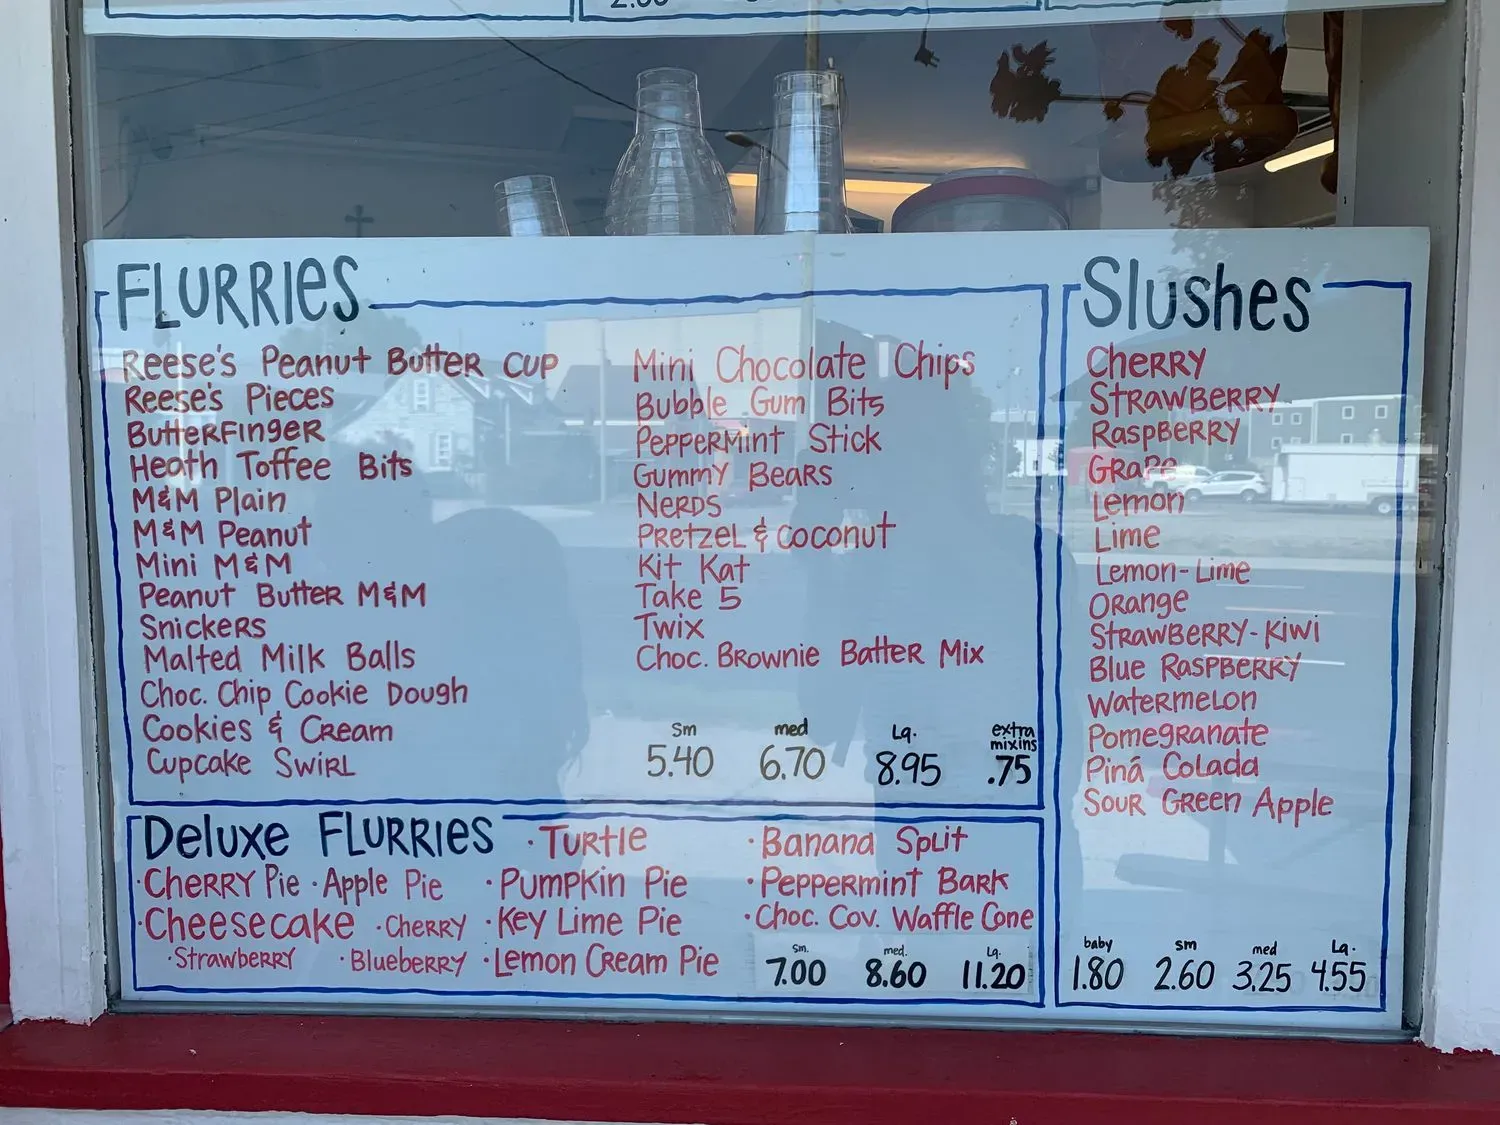 2.00
FLURRIES
Reese's Peanut Butter Cup
Reese's Pieces
Butterfinger
Heath Toffee Bits
M&M Plain
M&M Peanut
Mini M&M
Peanut Butter M&M
Snickers
Malted Milk Balls
Choc. Chip Cookie Dough
Cookies & Cream
Cupcake Swirl
Mini Chocolate Chips
Bubble Gum Bits
Peppermint Stick
Gummy Bears
Nerds
Pretzel & Coconut
Kit Kat
Take 5
Twix
Choc. Brownie Batter Mix
Sm med Lg. extra mixins
5.40 6.70 8.95 .75
Deluxe FLURRIES
· Turtle
· Cherry Pie · Apple Pie
· Pumpkin Pie
· Cheesecake · Cherry
· Key Lime Pie
· Strawberry · Blueberry
· Lemon Cream Pie
· Banana Split
· Peppermint Bark
· Choc. Cov. Waffle Cone
Sm. med. Lg.
7.00 8.60 11.20
Slushes
Cherry
Strawberry
Raspberry
Grape
Lemon
Lime
Lemon-Lime
Orange
Strawberry-Kiwi
Blue Raspberry
Watermelon
Pomegranate
Pinã Colada
Sour Green Apple
baby sm med Lg.
1.80 2.60 3.25 4.55